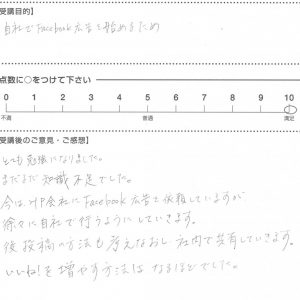 受講目的】
自社でFacebook広告を始めるため
点数に○をつけて下さい
0 1 2 3 4 5 6 7 8 9 10
不満 普通 満足
受講後のご意見・ご感想】
とても勉強になりました。
まだまだ知識不足でした。
今はHP会社にFacebook広告を依頼していますが
徐々に自社で行うようにしていきます。
後 投稿の方法も考えなおし社内で共有していきます。
いいね!を増やす方法は なるほどでした。